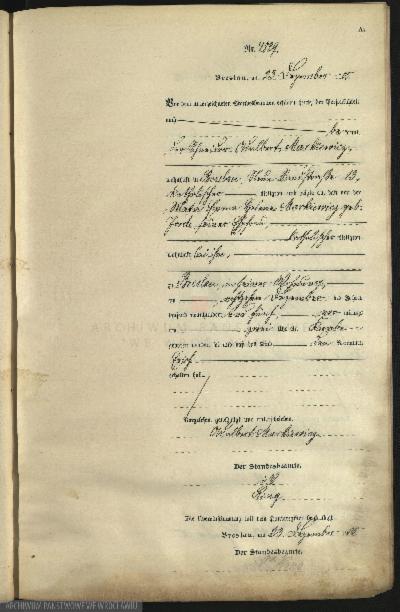 Nr. 4529.
Breslau, am 23. Dezember 1885
Vor dem unterzeichneten Standesbeamten erschien heute, der Persönlichkeit
nach
kannt,
der Schneider Adalbert Markiewicz,
wohnhaft in Breslau, Neue 13,
katholischer Religion, und zeigte an, daß von der
Maria Anna Helene Markiewicz geb.
seiner Ehefrau,
katholischer Religion,
wohnhaft bei ihm,
zu Breslau, in seiner Wohnung,
am Dezember des Jahres
tausend achthundert achtzig und fünf
um zwei Uhr ein Kind
geboren worden sei, welches den Vornamen
Erich
erhalten habe.
Vorgelesen, genehmigt und unterschrieben
Adalbert Markiewicz
Der Standesbeamte.
Die Übereinstimmung mit dem Hauptregister beglaubigt
Breslau, am 23. Dezember 1885
Der Standesbeamte.
ARCHIWUM PAŃSTWOWE WE WROCŁAWIU